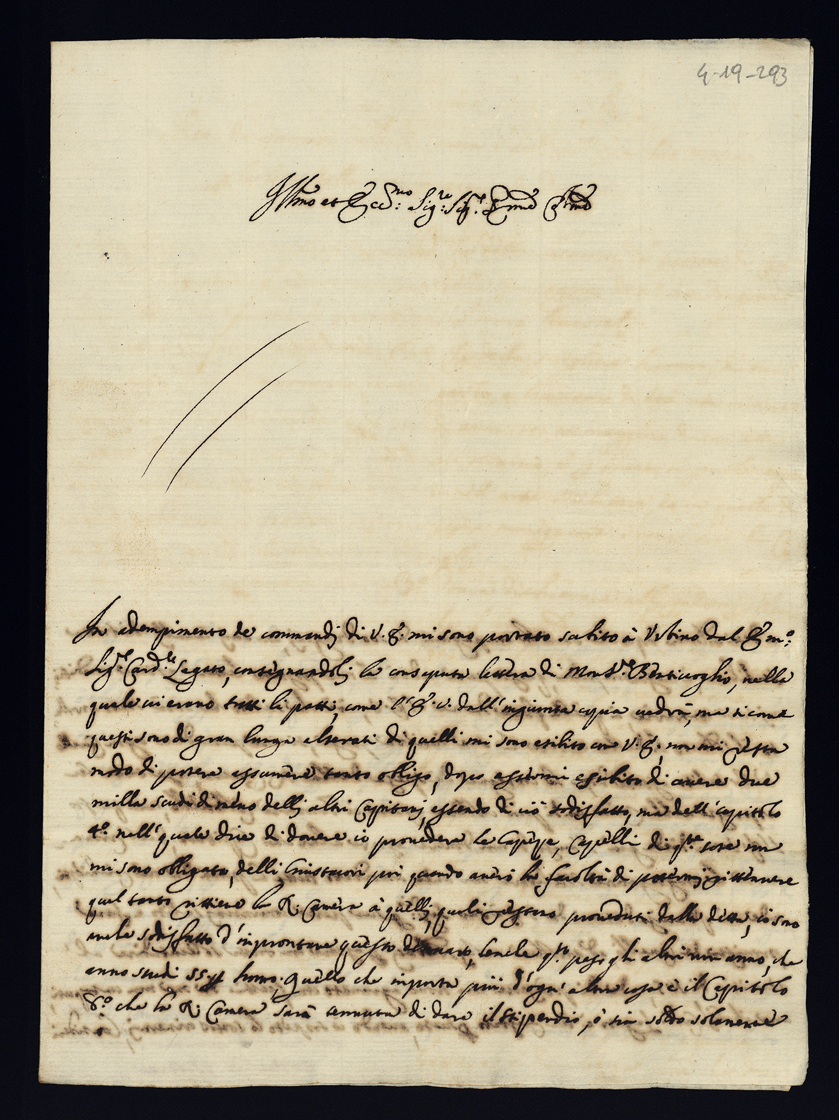 4-19-293
Ill.mo et Ecc.mo Sig.re Sig.re P.rone Col.mo
In adempimento de commandi di V. E. mi sono portato subito à Urbino dal E.mo
Sig.r Card.le Legato, consignandoli la consaputa lettera di Mons.re Bentivoglio, nella
quale vi erano tutti li patti, come l'E. V. dall'ingiunta copia vedrà, ma si come
questi sono di gran lunga alterati di quelli mi sono esibito con V. E., non mi resta
modo di potere assumere tanto obligo, dopo essermi esibito di avere due
milla scudi di meno delli altri Capitani, essendo di ciò sodisfatto, ma dell'Capitolo
4.o nell'quale dice di dovere io provedere le Cappe, Capelli di q.ta sorte non
mi sono obligato, delli poi quando averò la facoltà di potermi rittennere
quel tanto rittiene la R. Camera à quelli, quali restano proveduti dalla detta, io sono
anche sodisfatto d'improntare questo denaro, benche gli altri un anno, che
anno scudi 55 homo. Quello che importa più d'ogn'altra cosa è il Capitolo
8.o che la R. Camera sarà tennuta di dare il stipendio, ò sia soldo solamente